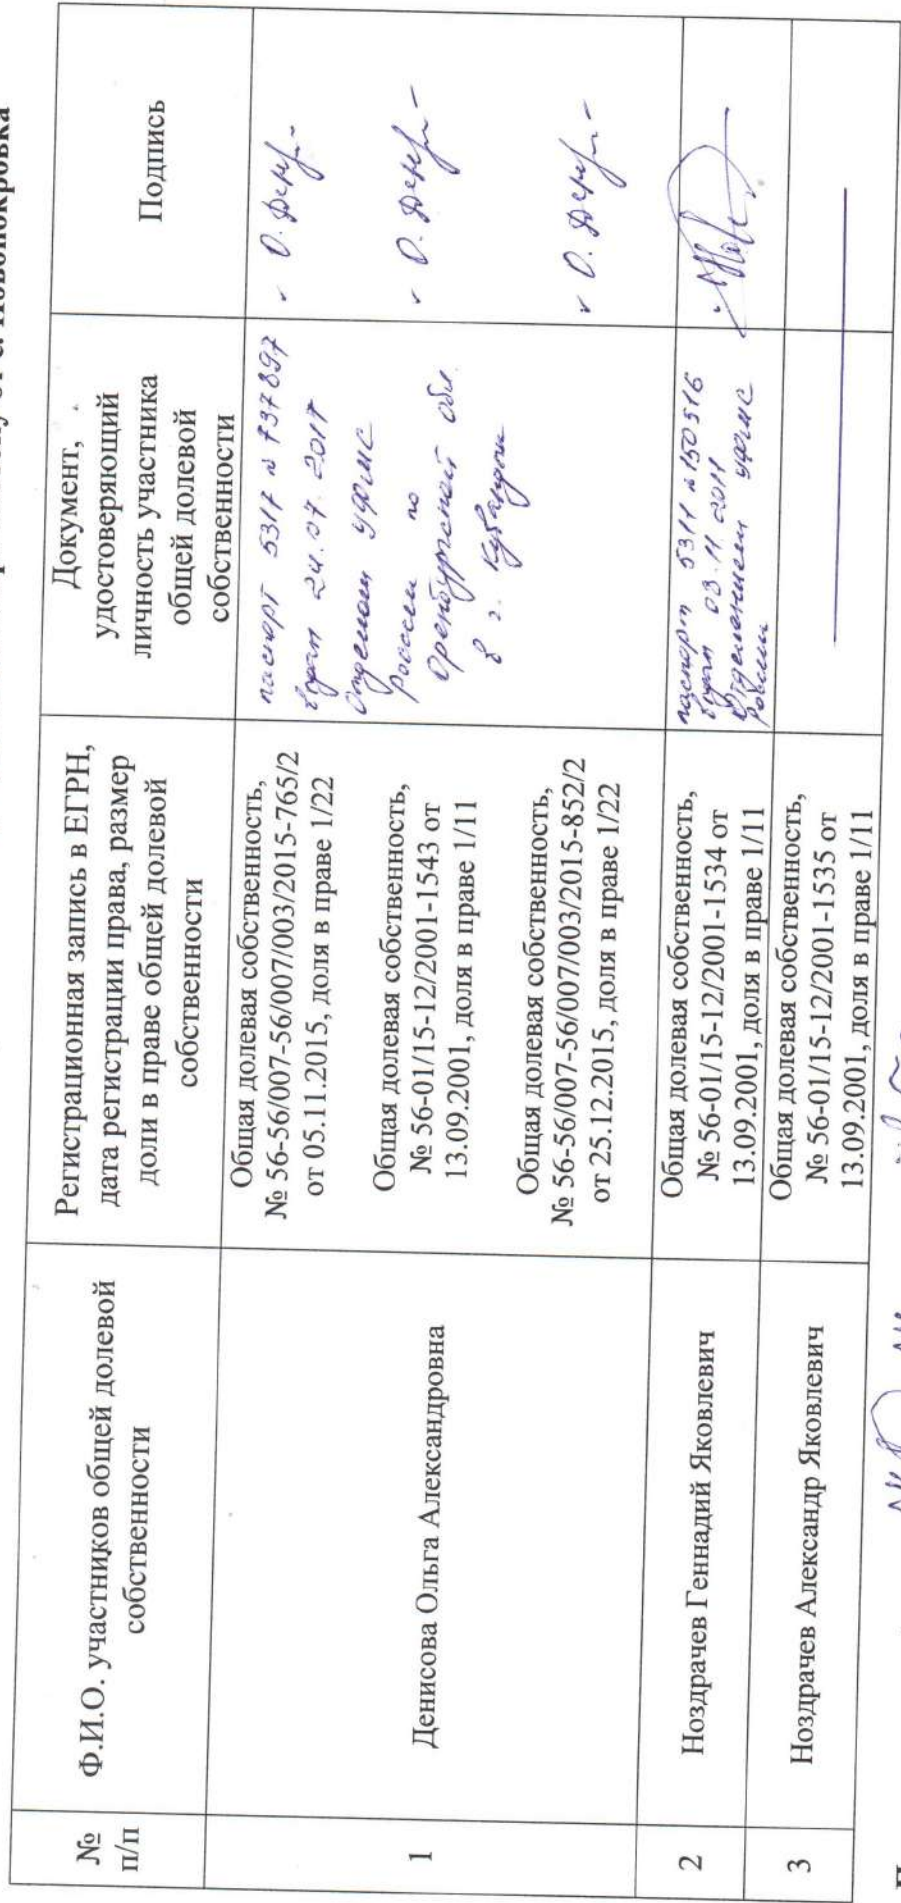 с. Новопокровка
№
п/п
Ф.И.О. участников общей долевой
собственности
Регистрационная запись в ЕГРН,
дата регистрации права, размер
доли в праве общей долевой
собственности
Документ,
удостоверяющий
личность участника
общей долевой
собственности
Подпись
1
Денисова Ольга Александровна
Общая долевая собственность,
№ 56-56/007-56/007/003/2015-765/2
от 05.11.2015, доля в праве 1/22
Общая долевая собственность,
№ 56-01/15-12/2001-1543 от
13.09.2001, доля в праве 1/11
Общая долевая собственность,
№ 56-56/007-56/007/003/2015-852/2
от 25.12.2015, доля в праве 1/22
паспорт 5317 № 737897
выдан 24.07.2017
Отделом УФМС
России по
Оренбургской обл.
в г. Кувандык
2
Ноздрачев Геннадий Яковлевич
Общая долевая собственность,
№ 56-01/15-12/2001-1534 от
13.09.2001, доля в праве 1/11
паспорт 5311 № 150516
выдан 03.11.2011
Отделением УФМС
России
3
Ноздрачев Александр Яковлевич
Общая долевая собственность,
№ 56-01/15-12/2001-1535 от
13.09.2001, доля в праве 1/11